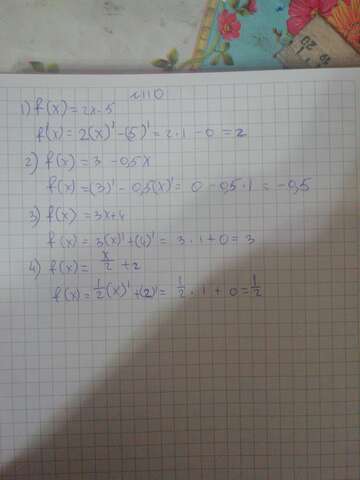 №110
1) f(x) = 2x - 5
f(x) = 2(x)' - (5)' = 2 · 1 - 0 = 2
2) f(x) = 3 - 0,5x
f(x) = (3)' - 0,5(x)' = 0 - 0,5 · 1 = -0,5
3) f(x) = 3x+4
f(x) = 3(x)' + (4)' = 3 · 1 + 0 = 3
4) f(x) = x/2 + 2
f(x) = 1/2 (x)' + (2)' = 1/2 · 1 + 0 = 1/2